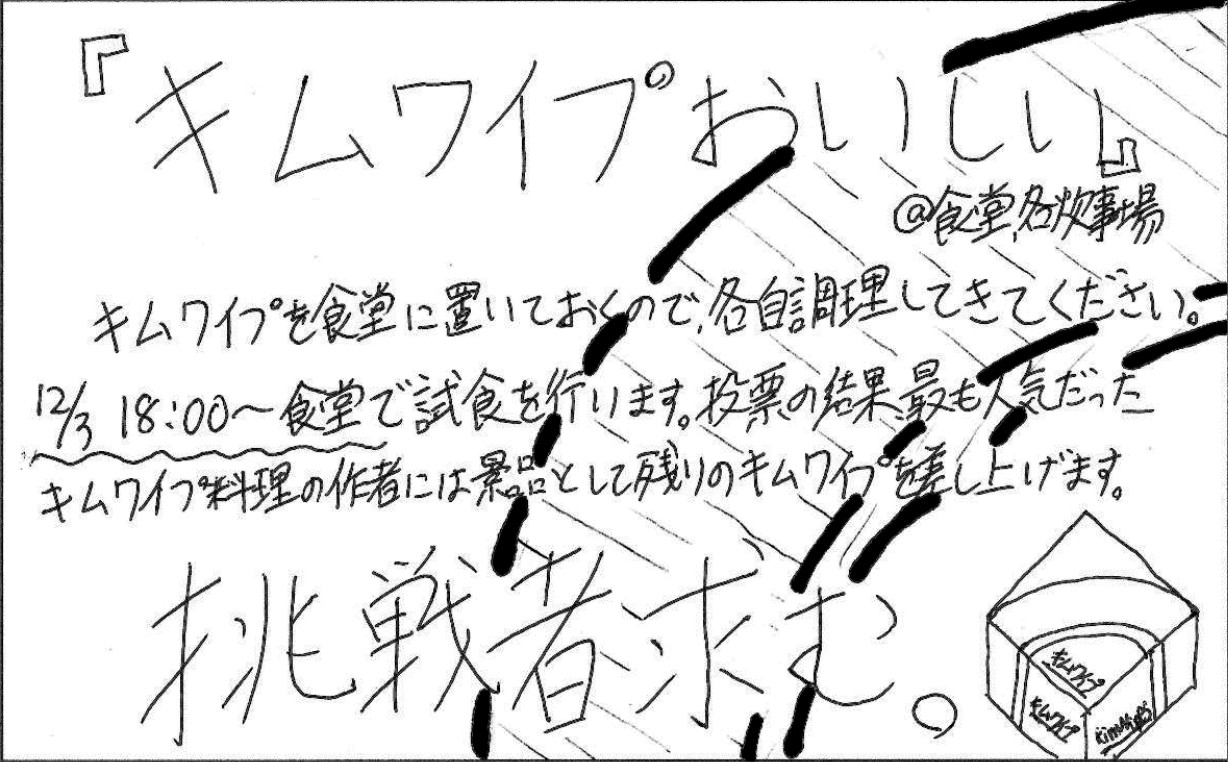 『キムワイプおいしい』
@食堂,各炊事場
キムワイプを食堂に置いておくので,各自調理してきてください。
12/3 18:00〜食堂で試食を行います。投票の結果、最も人気だった
キムワイプ料理の作者には景品として残りのキムワイプを差し上げます。
挑戦者求む。
キムワイプ
キムワイプ
kimwipes